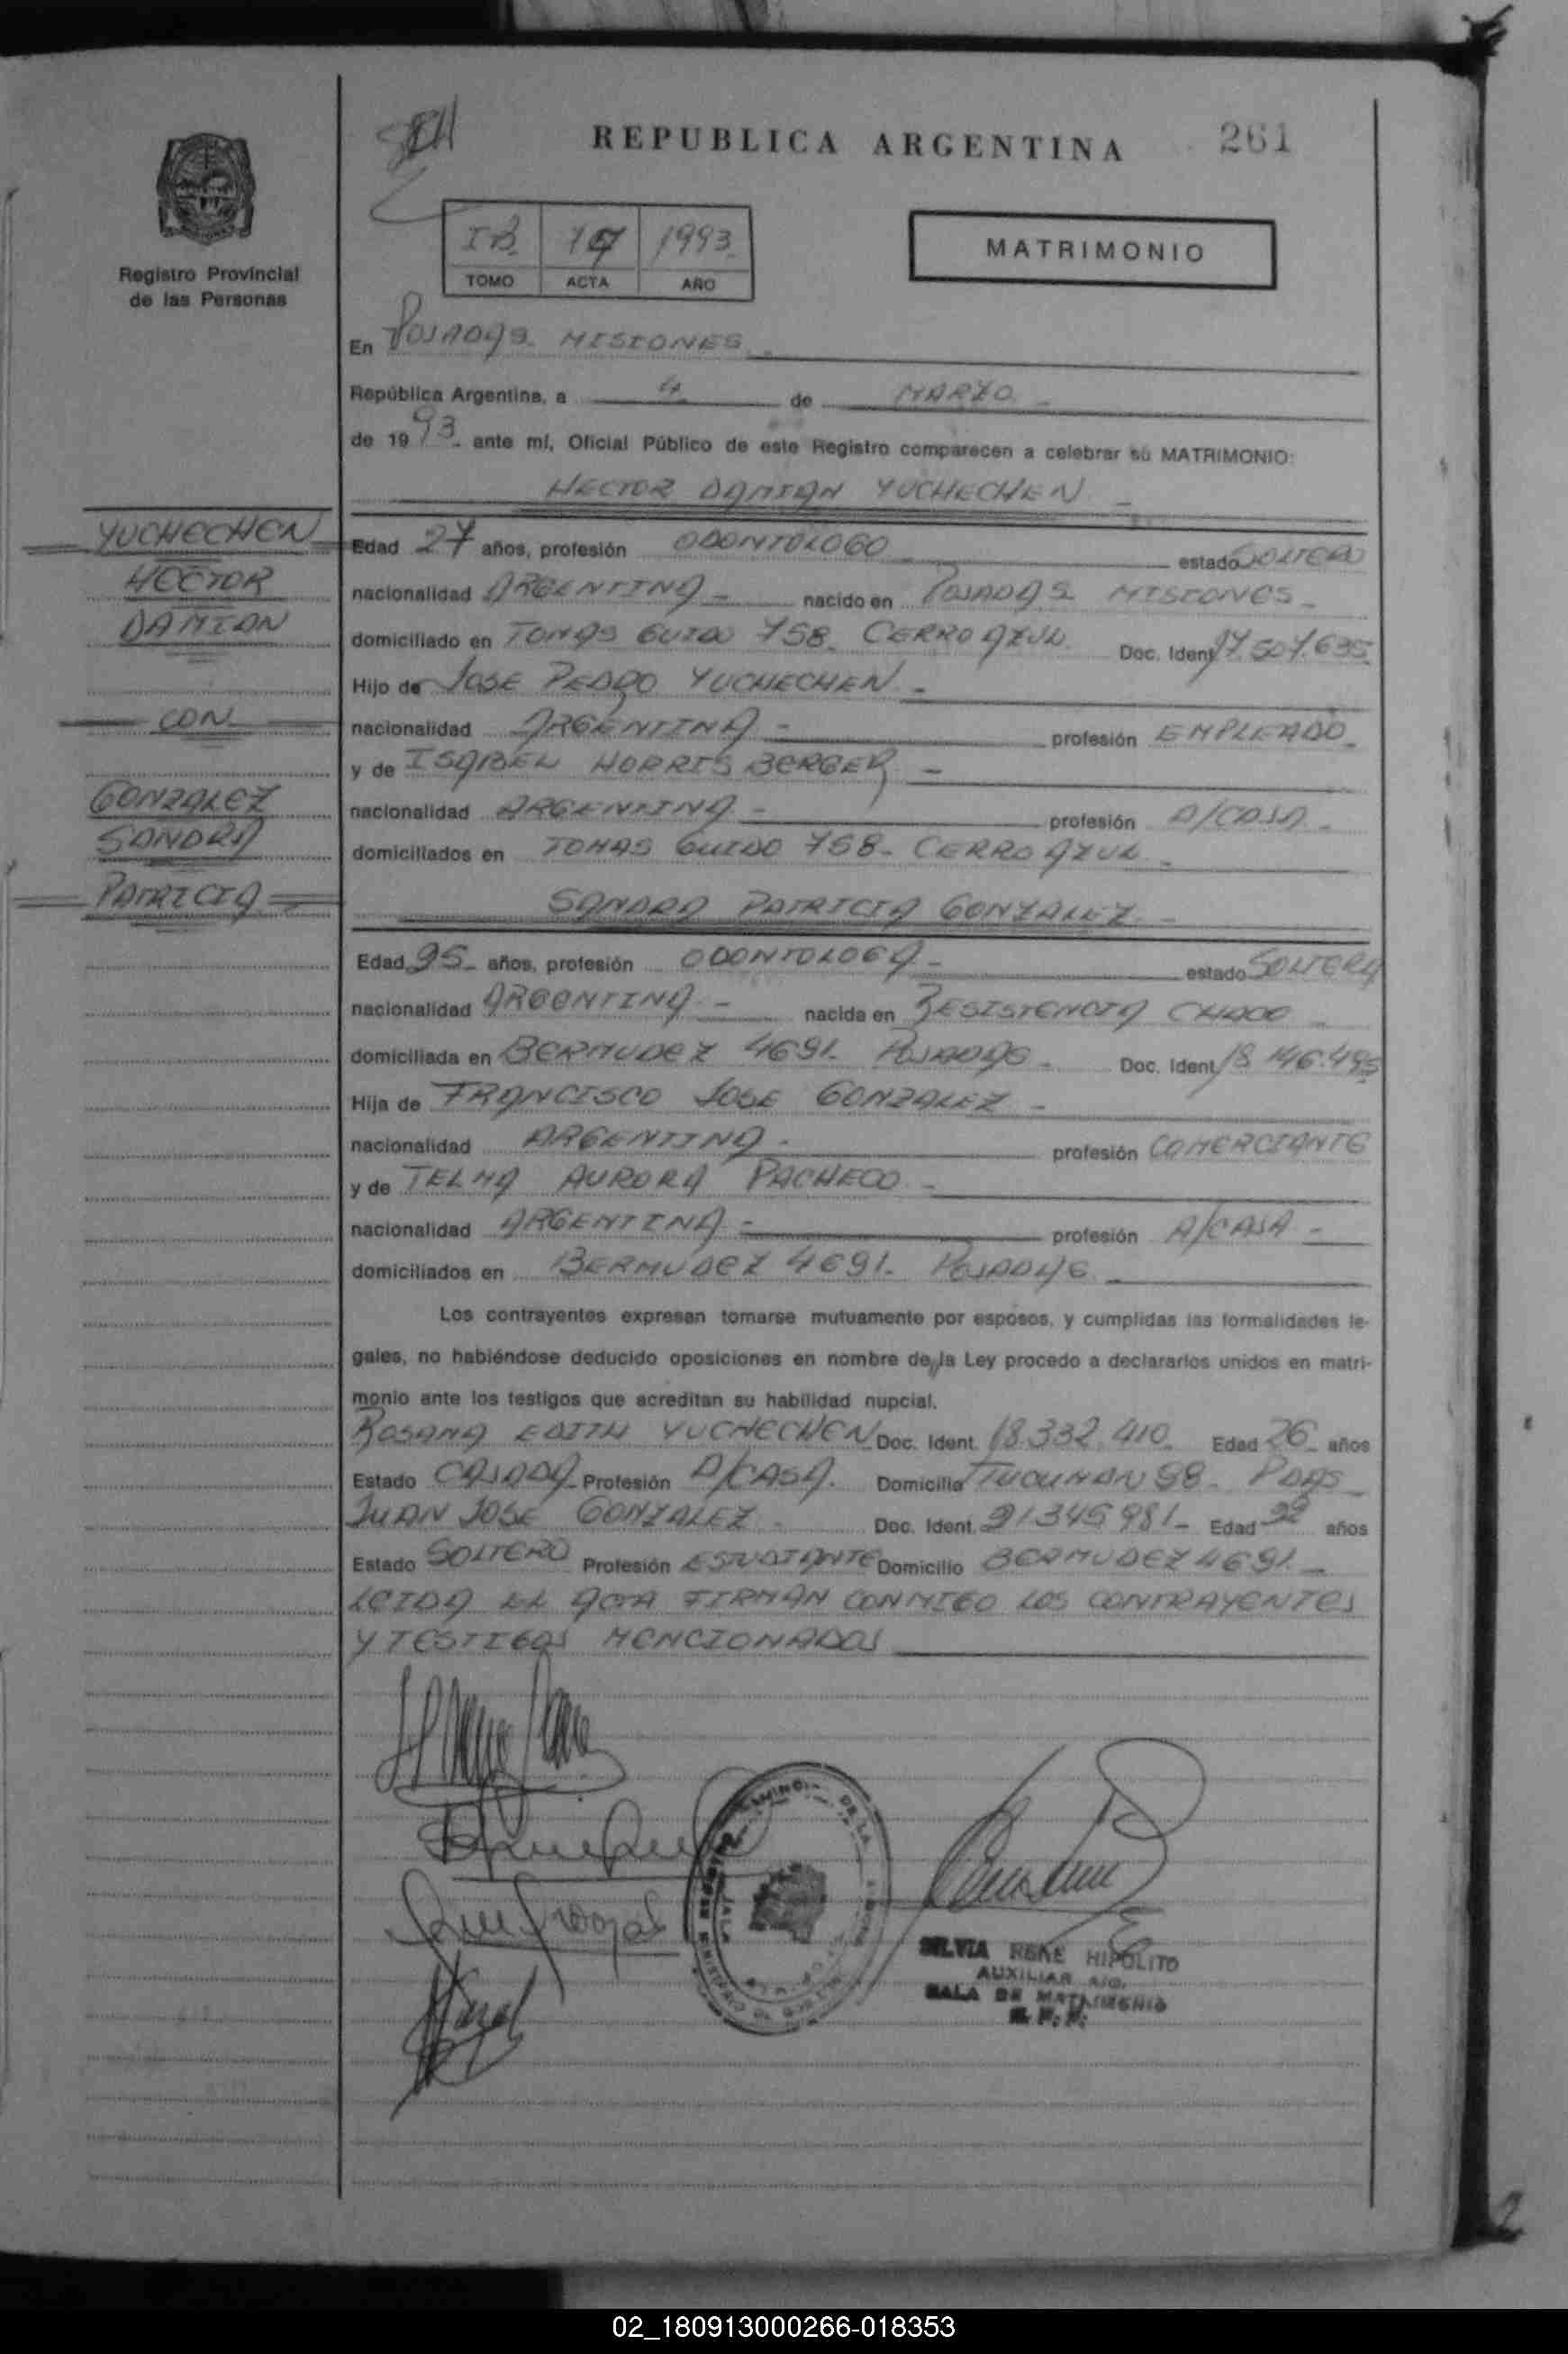 REPUBLICA ARGENTINA
261
Registro Provincial
de las Personas
1993
TOMO ACTA AÑO
MATRIMONIO
En POSADAS MISIONES
República Argentina, a 4 de MARZO
de 1993 ante mí, Oficial Público de este Registro comparecen a celebrar su MATRIMONIO:
HECTOR DAMIAN YUCHECHEN
YUCHECHEN
HECTOR
DAMIAN
CON
GONZALEZ
SANDRA
PATRICIA
Edad 27 años, profesión ODONTOLOGO estado SOLTERO
nacionalidad ARGENTINA nacido en POSADAS MISIONES
domiciliado en TOMAS GUIDO 758 CERRO AZUL Doc. Ident. 17.507.635
Hijo de JOSE PEDRO YUCHECHEN
nacionalidad ARGENTINA profesión EMPLEADO
y de ISABEL NORRIS BERGER
nacionalidad ARGENTINA profesión A/CASA
domiciliados en TOMAS GUIDO 758 - CERRO AZUL
SANDRA PATRICIA GONZALEZ
Edad 25 años, profesión ODONTOLOGA estado SOLTERA
nacionalidad ARGENTINA nacida en RESISTENCIA CHACO
domiciliada en BERMUDEZ 4691 POSADAS Doc. Ident. 18.146.495
Hija de FRANCISCO JOSE GONZALEZ
nacionalidad ARGENTINA profesión COMERCIANTE
y de TELMA AURORA PACHECO
nacionalidad ARGENTINA profesión A/CASA
domiciliados en BERMUDEZ 4691 POSADAS
Los contrayentes expresan tomarse mutuamente por esposos, y cumplidas las formalidades le-
gales, no habiéndose deducido oposiciones en nombre de la Ley procedo a declararlos unidos en matri-
monio ante los testigos que acreditan su habilidad nupcial.
ROSANA EDITH YUCHECHEN Doc. Ident. 18.332.410 Edad 26 años
Estado CASADA Profesión A/CASA Domicilio TUCUMAN 98 PDAS
JUAN JOSE GONZALEZ Doc. Ident. 21345981 Edad 22 años
Estado SOLTERO Profesión ESTUDIANTE Domicilio BERMUDEZ 4691
LEIDA EL ACTA FIRMAN CONMIGO LOS CONTRAYENTES
Y TESTIGOS MENCIONADOS
SILVIA RENE HIPOLITO
AUXILIAR
SALA DE MATRIMONIO
02_180913000266-018353